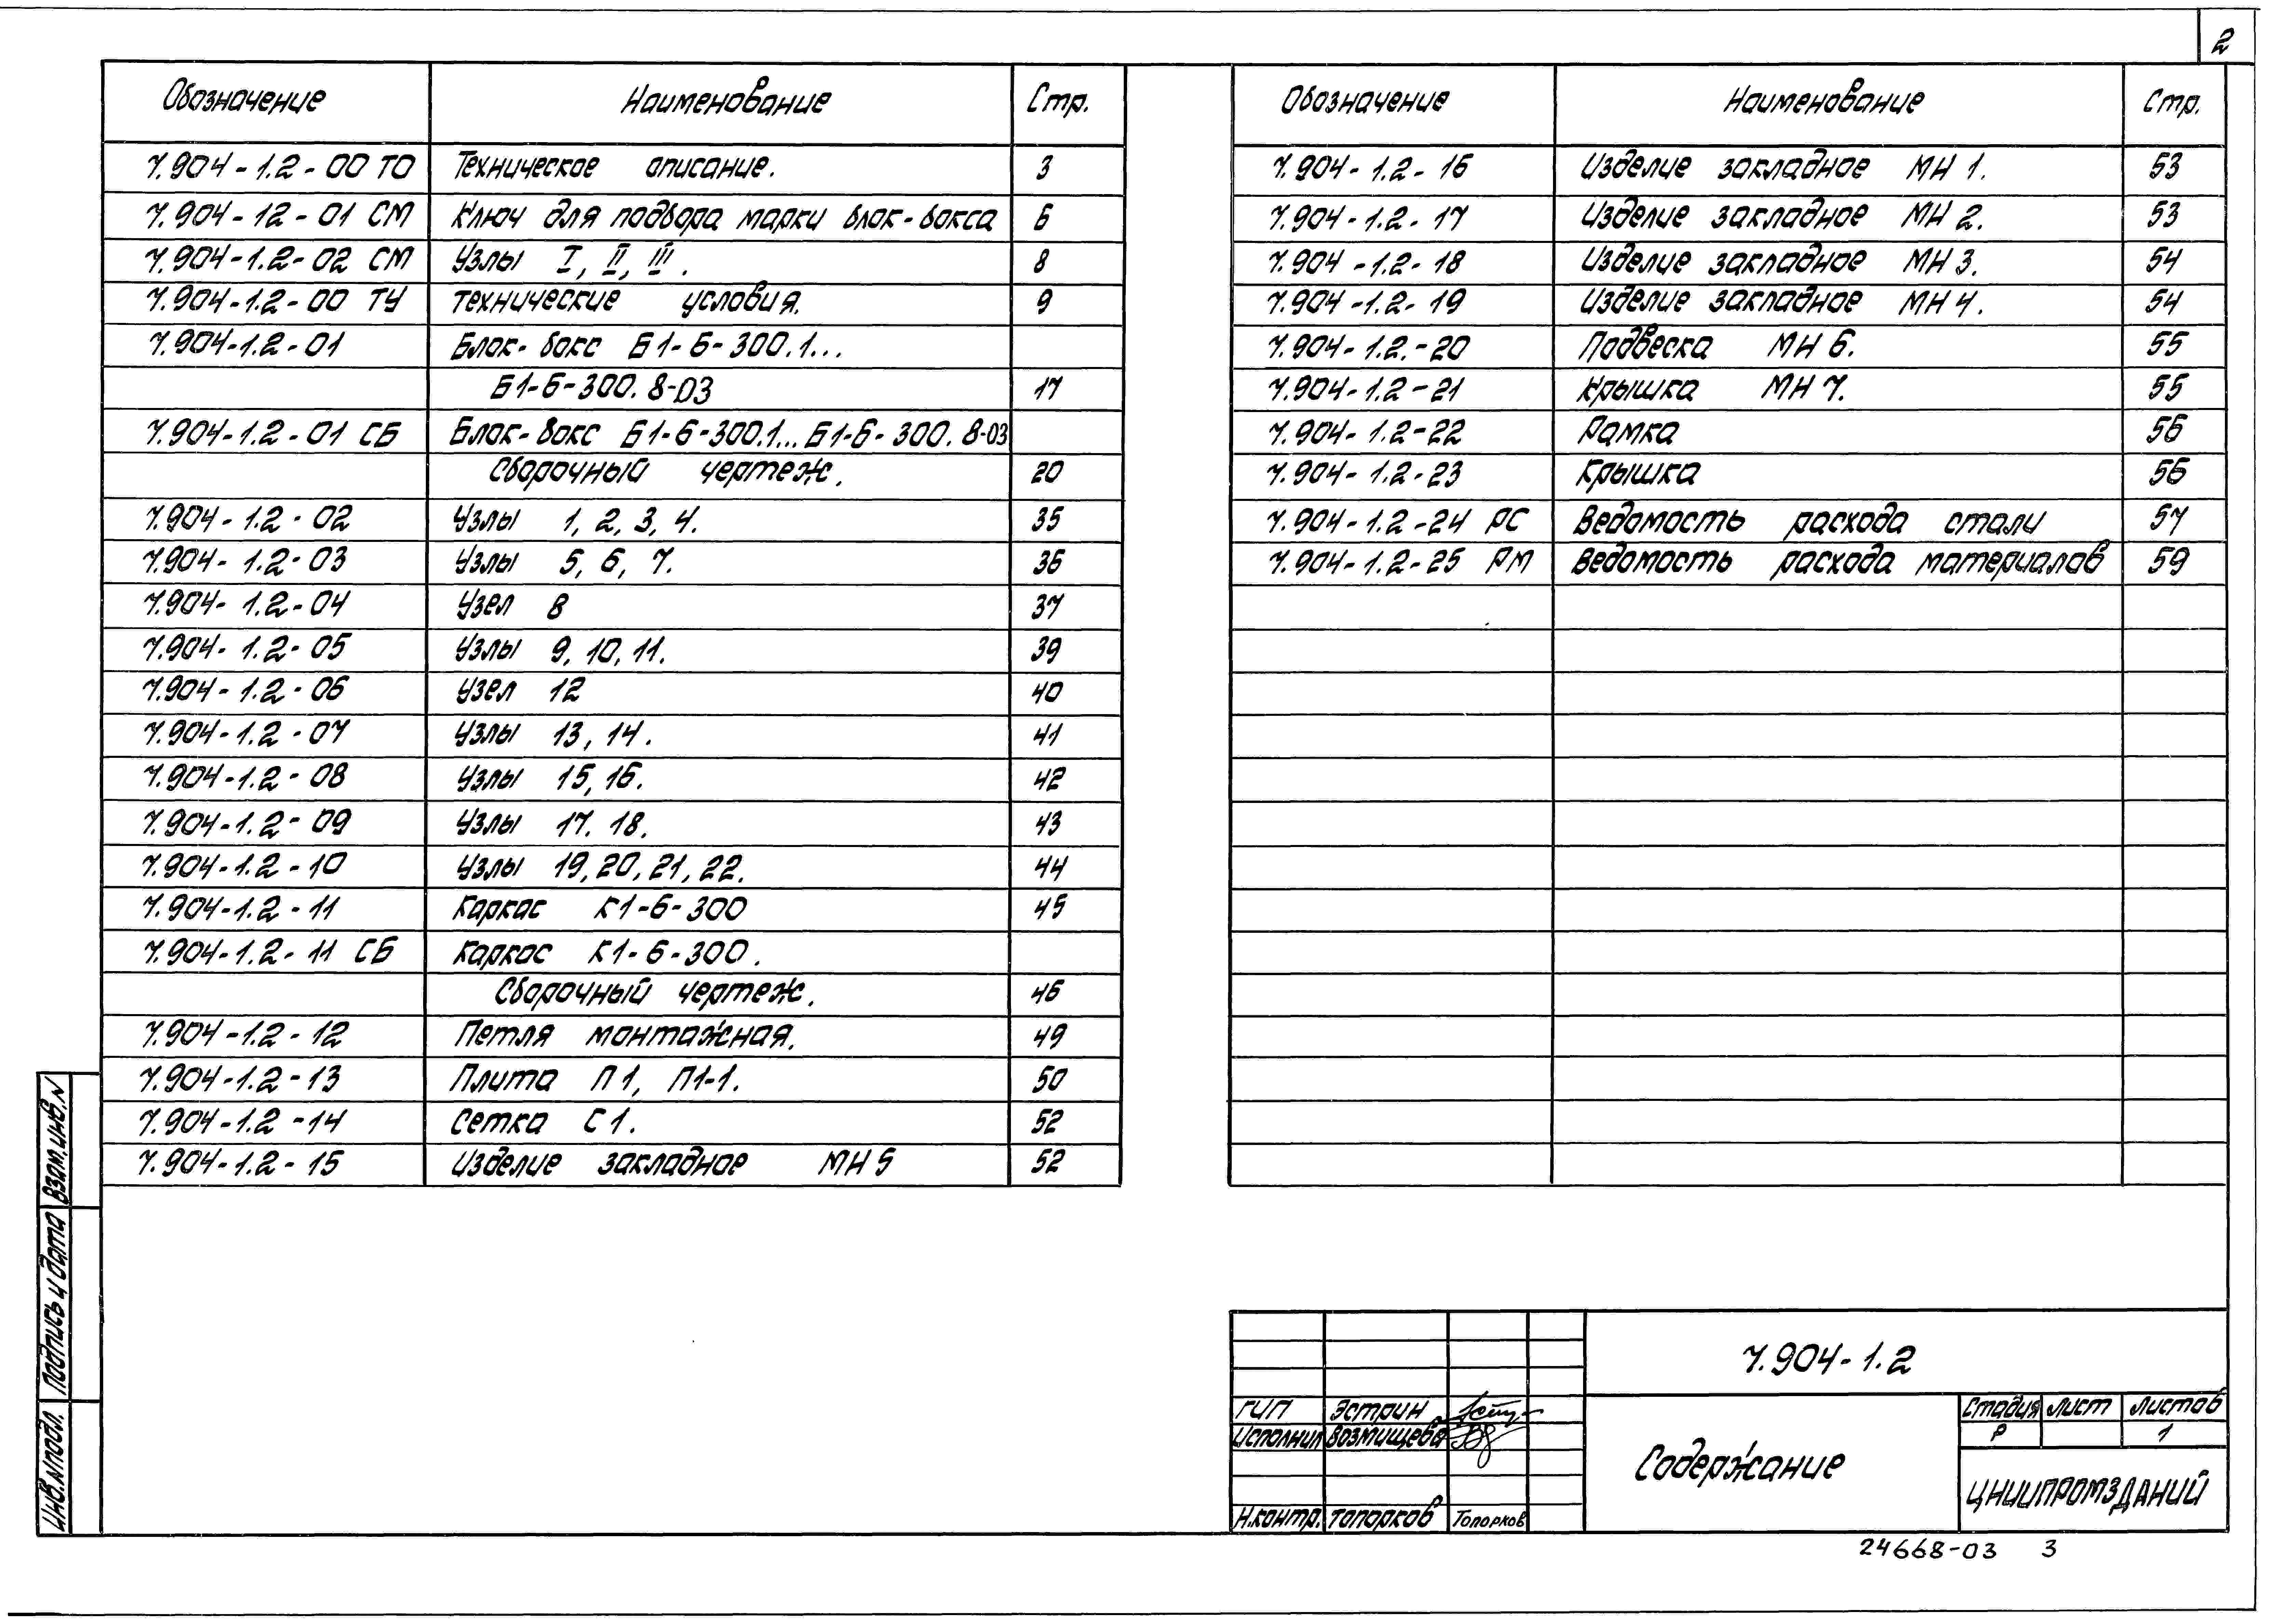 2
Обозначение Наименование Стр.
7.904-1.2-00 ТО Техническое описание. 3
7.904-12-01 СМ Ключ для подбора марки блок-бокса 6
7.904-1.2-02 СМ Узлы I, II, III. 8
7.904-1.2-00 ТУ технические условия. 9
7.904-1.2-01 Блок-бокс Б1-6-300.1...
Б1-6-300.8-03 17
7.904-1.2-01 СБ Блок-бокс Б1-6-300.1...Б1-6-300.8-03
Сборочный чертеж. 20
7.904-1.2-02 Узлы 1, 2, 3, 4. 35
7.904-1.2-03 Узлы 5, 6, 7. 36
7.904-1.2-04 Узел 8 37
7.904-1.2-05 Узлы 9, 10, 11. 39
7.904-1.2-06 Узел 12 40
7.904-1.2-07 Узлы 13, 14. 41
7.904-1.2-08 Узлы 15, 16. 42
7.904-1.2-09 Узлы 17. 18. 43
7.904-1.2-10 Узлы 19, 20, 21, 22. 44
7.904-1.2-11 Каркас К1-6-300 45
7.904-1.2-11 СБ Каркас К1-6-300.
Сборочный чертеж. 46
7.904-1.2-12 Петля монтажная. 49
7.904-1.2-13 Плита П1, П1-1. 50
7.904-1.2-14 Сетка С1. 52
7.904-1.2-15 Изделие закладное МН5 52
Обозначение Наименование Стр.
7.904-1.2-16 Изделие закладное МН 1. 53
7.904-1.2-17 Изделие закладное МН 2. 53
7.904-1.2-18 Изделие закладное МН 3. 54
7.904-1.2-19 Изделие закладное МН 4. 54
7.904-1.2.-20 Подвеска МН 6. 55
7.904-1.2-21 Крышка МН 7. 55
7.904-1.2-22 Рамка 56
7.904-1.2-23 Крышка 56
7.904-1.2-24 РС Ведомость расхода стали 57
7.904-1.2-25 РМ Ведомость расхода материалов 59
Взам.инв.N
Подпись и дата
Инв.Nподл.
7.904-1.2
ГИП Эстрин
Исполнил Возмищева
Н.контр. Топорков Топорков
Содержание
Стадия Лист Листов
Р 1
ЦНИИПРОМЗДАНИЙ
24668-03 3